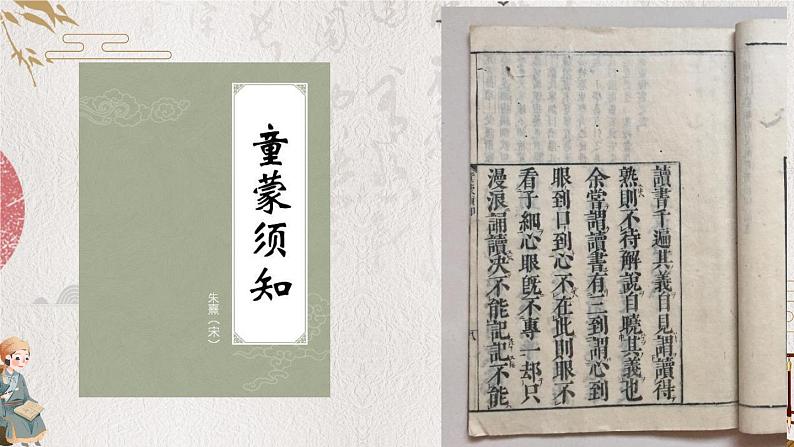 童蒙须知
朱熹（宋）
讀書千遍其義自見謂讀得
熟則不待解說自曉其義也
余嘗謂讀書有三到謂心到
眼到口到心不在此則眼不
看子細心眼旣不專一却只
漫浪誦讀决不能記記不能
八